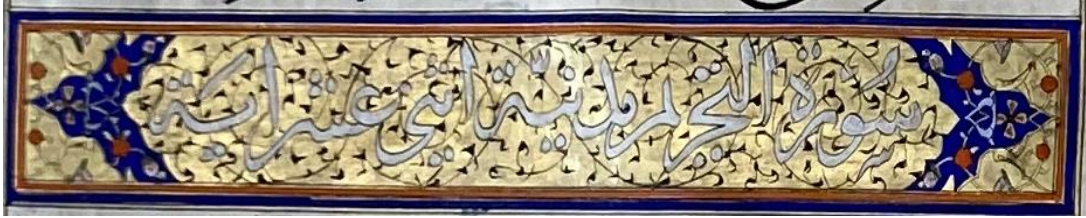 سورة التحريم مدنية اثنتي عشر اية